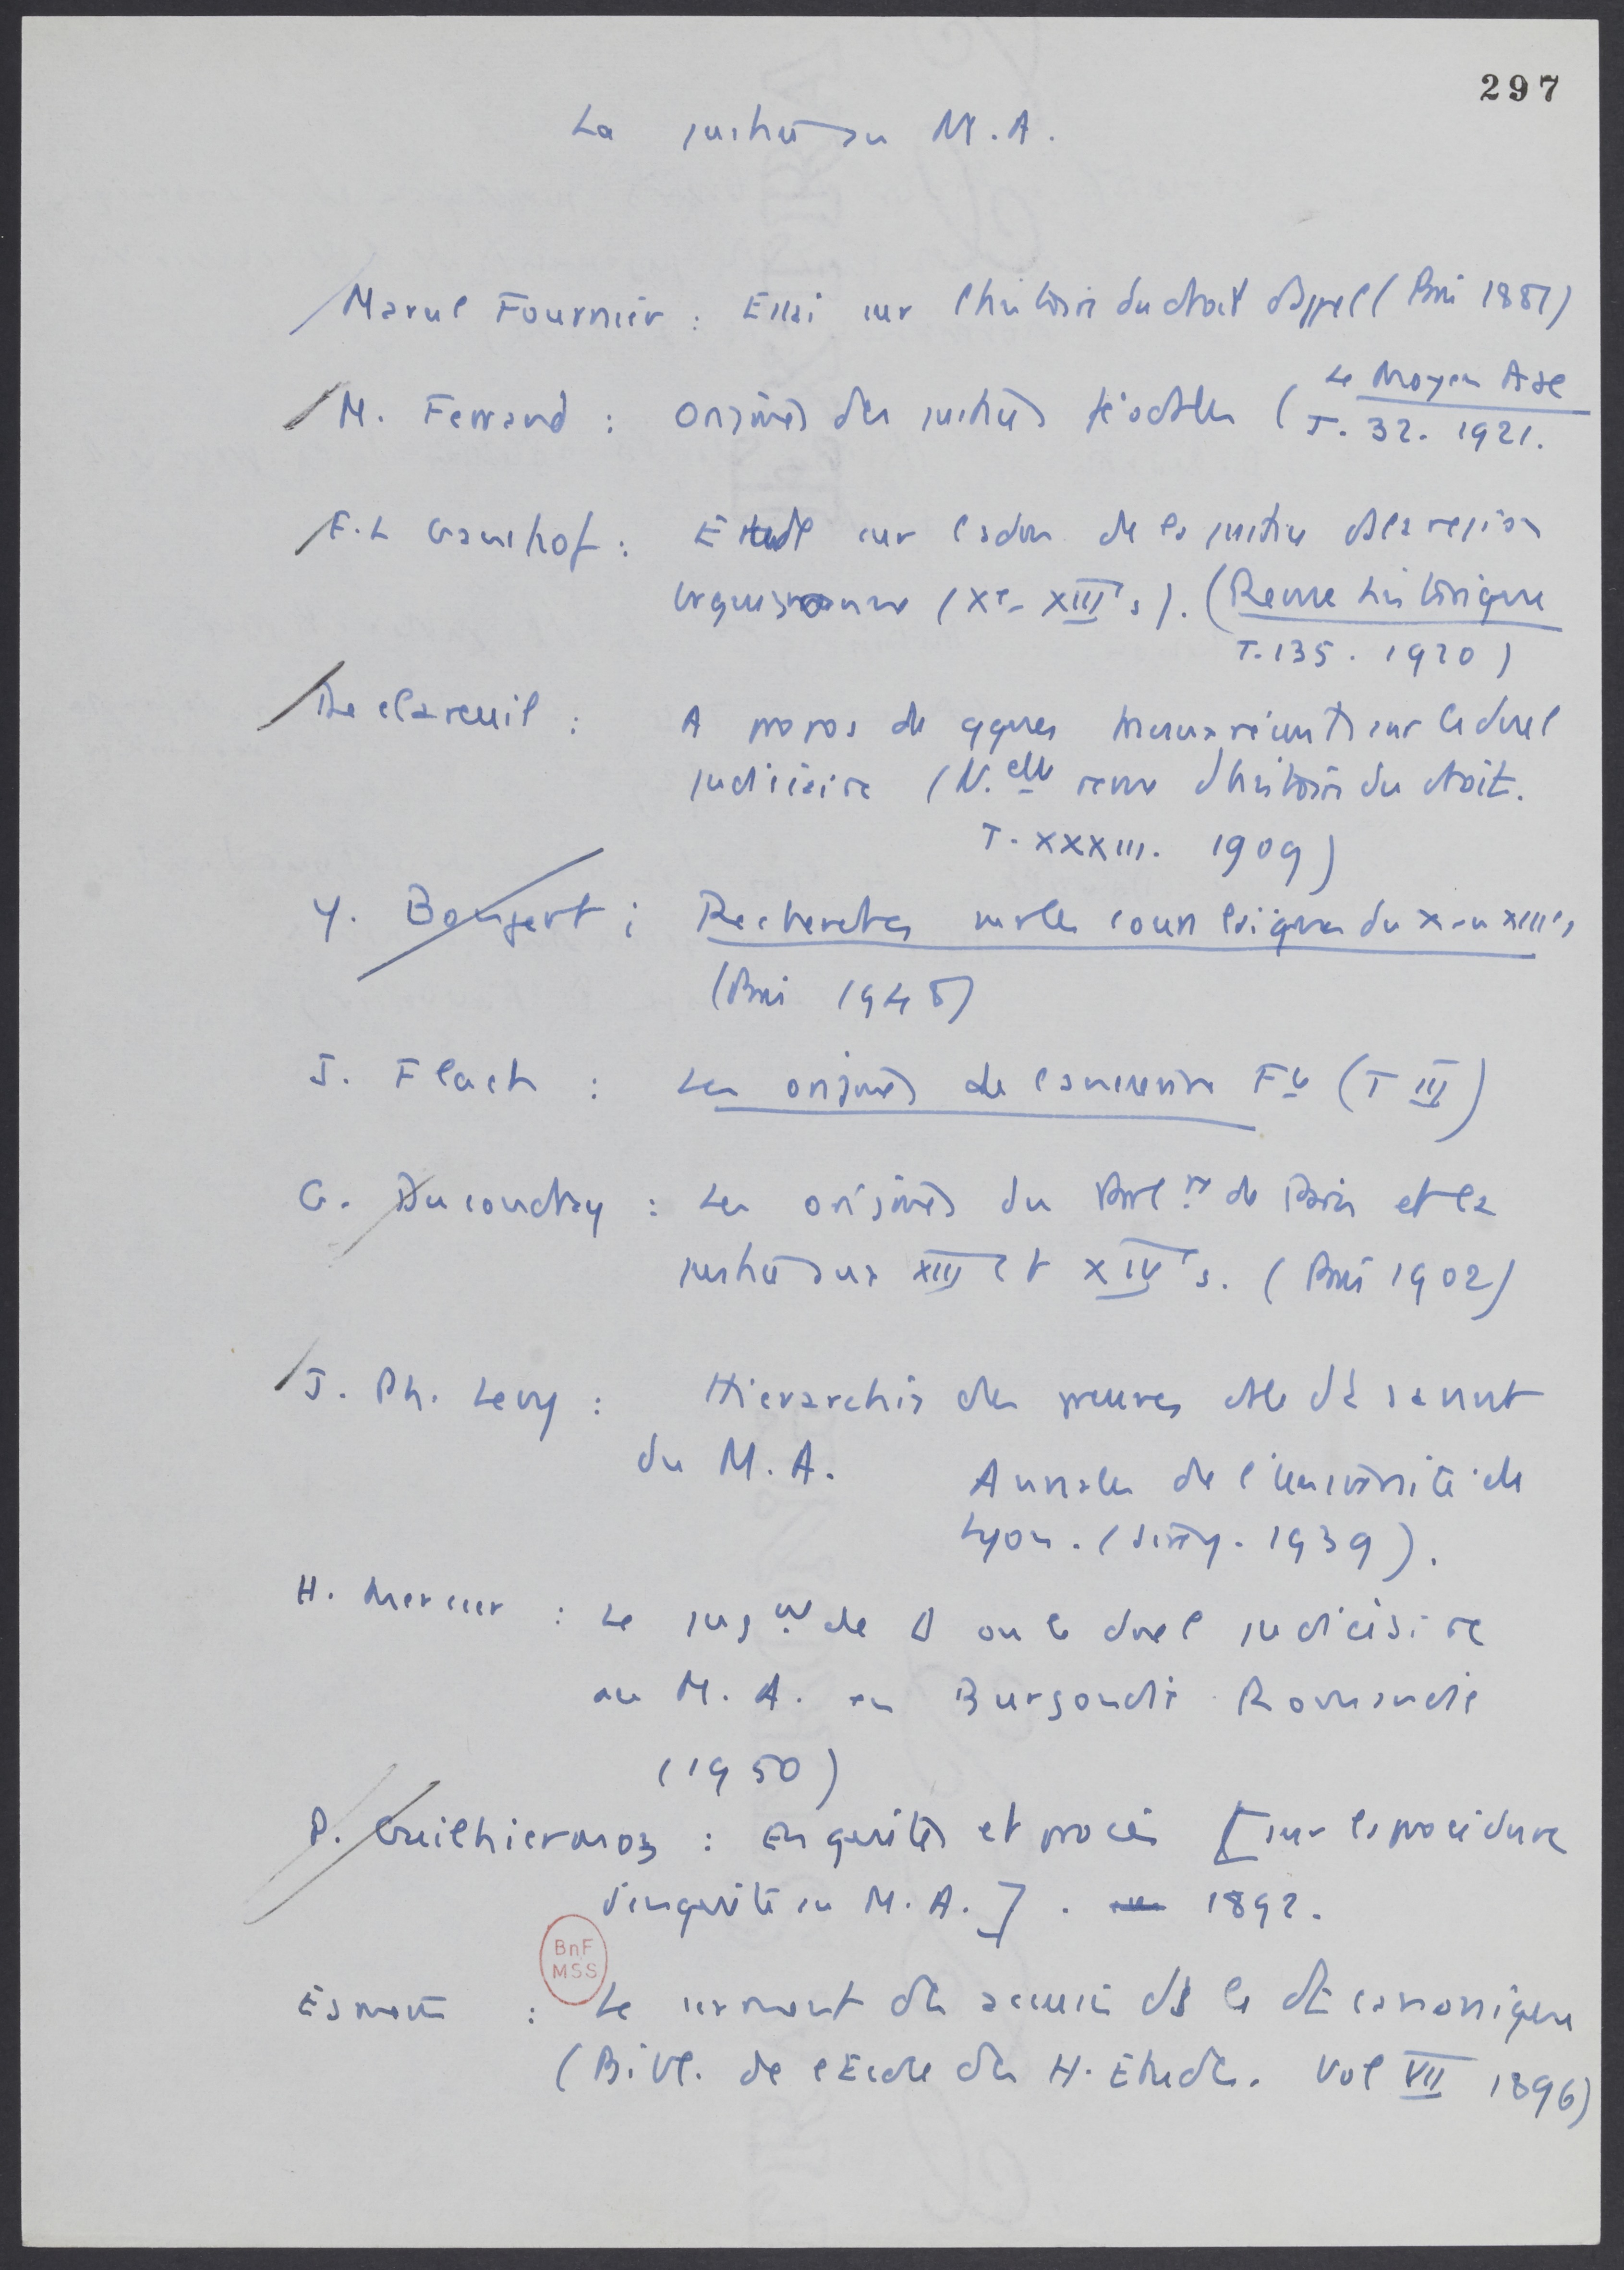 297
La justice au M.A.
Marcel Fournier : Essai sur l'histoire du droit d'appel (Paris 1881)
M. Ferrand : Origines des justices féodales (Le Moyen Age
T. 32. 1921.
F.L Ganshof : Etude sur l'adm de la justice ds la région
(Xe - XIIIe s). (Revue historique
T. 135. 1920)
Declareuil : A propos de qques travaux récents sur le duel
judiciaire (N.elle revue d'histoire du droit.
T. XXXIII. 1909)
Y. Bongert : Recherches sur les cours laïques du X au XIIIe s
(Paris 1948)
J. Flach : Les origines de l'ancienne Fce (T III)
G. Ducoudray : Les origines du Parlt de Paris et la
justice aux XIII et XIVe s. (Paris 1902)
J. Ph. Levy : Hierarchie des preuves ds le dt savant
du M.A. Annales de l'Université de
Lyon. (Sirey. 1939).
H. Mercier : Le jugt de D ou le duel judiciaire
au M.A. en Burgondie Romandie
(1950)
P. Guilhiermoz : Enquêtes et procès [sur la procédure
d'enquête au M.A.] . 1892.
Esmein : Le serment des accusés ds le dt canonique
(Bibl. de l'Ecole des H. Etudes. Vol VII 1896)
BnF
MSS